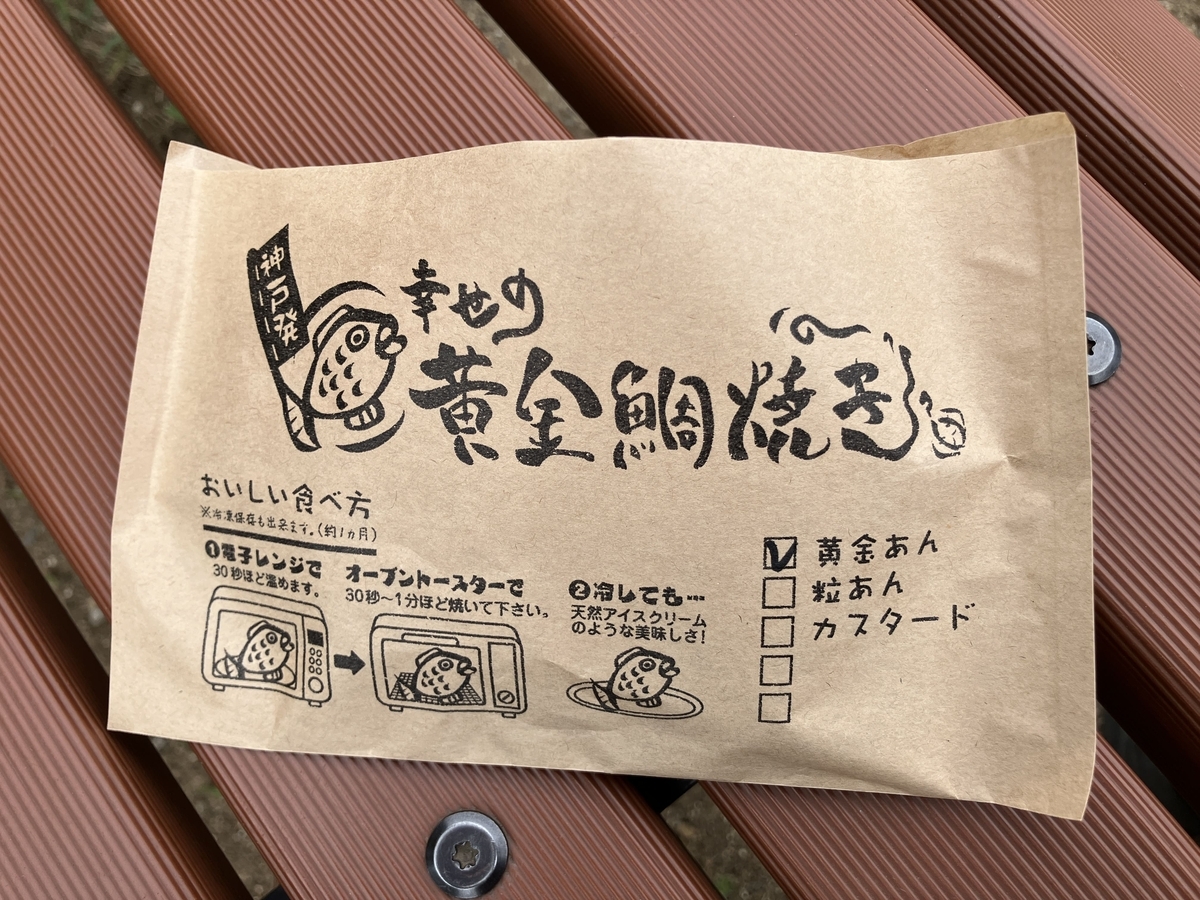 神戸発
幸せの
黄金鯛焼き
おいしい食べ方
※冷凍保存も出来ます。(約1ヵ月)
❶電子レンジで
30秒ほど温めます。
オーブントースターで
30秒〜1分ほど焼いて下さい。
❷冷しても…
天然アイスクリーム
のような美味しさ!
黄金あん
粒あん
カスタード